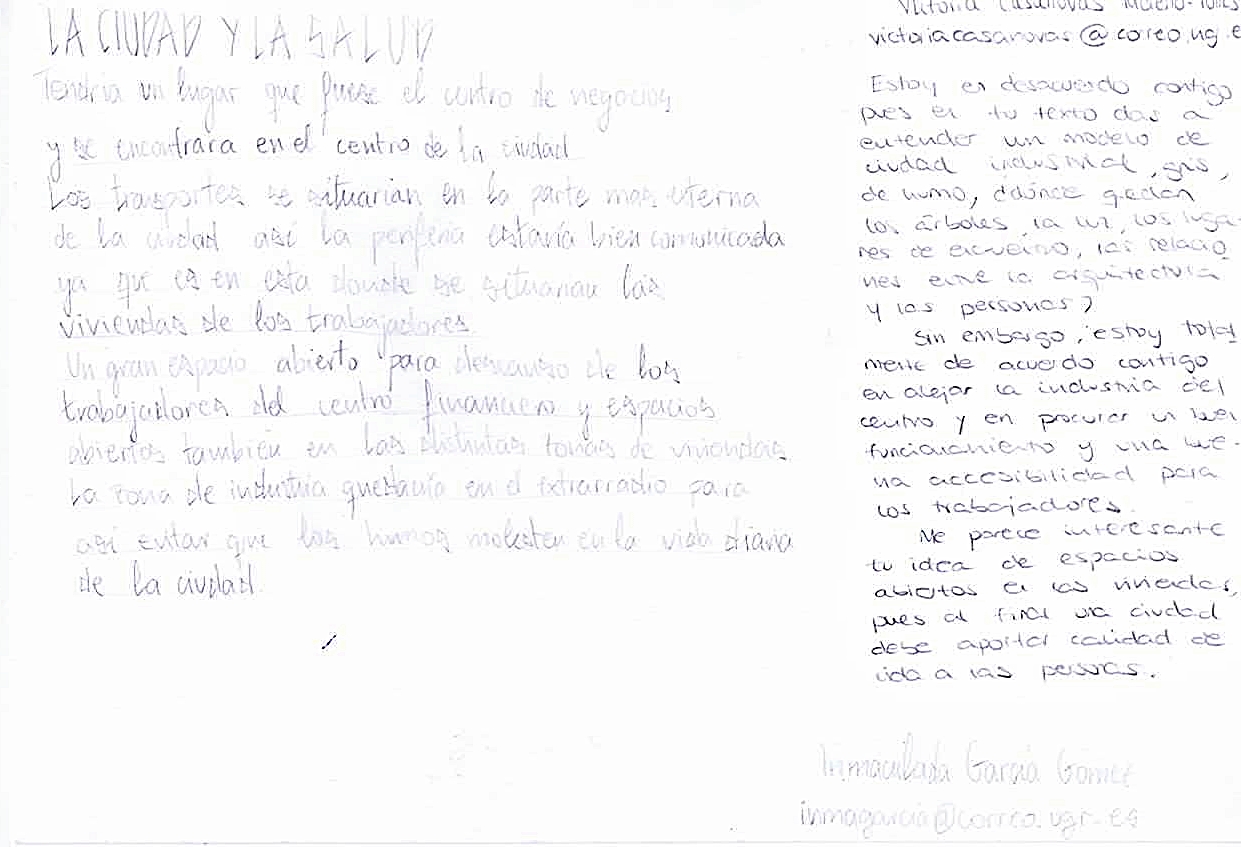 LA CIUDAD Y LA SALUD
Tendria un lugar que fuese el centro de negocios
y se encontrara en el centro de la ciudad
Los transportes se situarian en la parte mas externa
de la ciudad asi la periferia estaria bien comunicada
ya que es en esta donde se situarian las
viviendas de los trabajadores
Un gran espacio abierto para descanso de los
trabajadores del centro financiero y espacios
abiertos también en las distintas zonas de viviendas
La zona de industria quedaria en el extrarradio para
así evitar que los humos molesten en la vida diaria
de la ciudad.
Victoria Casanovas
victoriacasanovas@correo.ug.e
Estoy en desacuerdo contigo
pues en tu texto das a
entender un modelo de
ciudad industrial, gris,
de humo, ¿dónde quedan
los árboles, la luz, los luga-
res de encuentro, las relacio
nes entre la arquitectura
y las personas?
Sin embargo, estoy total
mente de acuerdo contigo
en alejar la industria del
centro y en procurar un buen
funcionamiento y una bue-
na accesibilidad para
los trabajadores.
Me parece interesante
tu idea de espacios
abiertos en las viviendas,
pues al final una ciudad
debe aportar calidad de
vida a las personas.
Inmaculada García Gómez
inmagarcia@correo.ugr.es